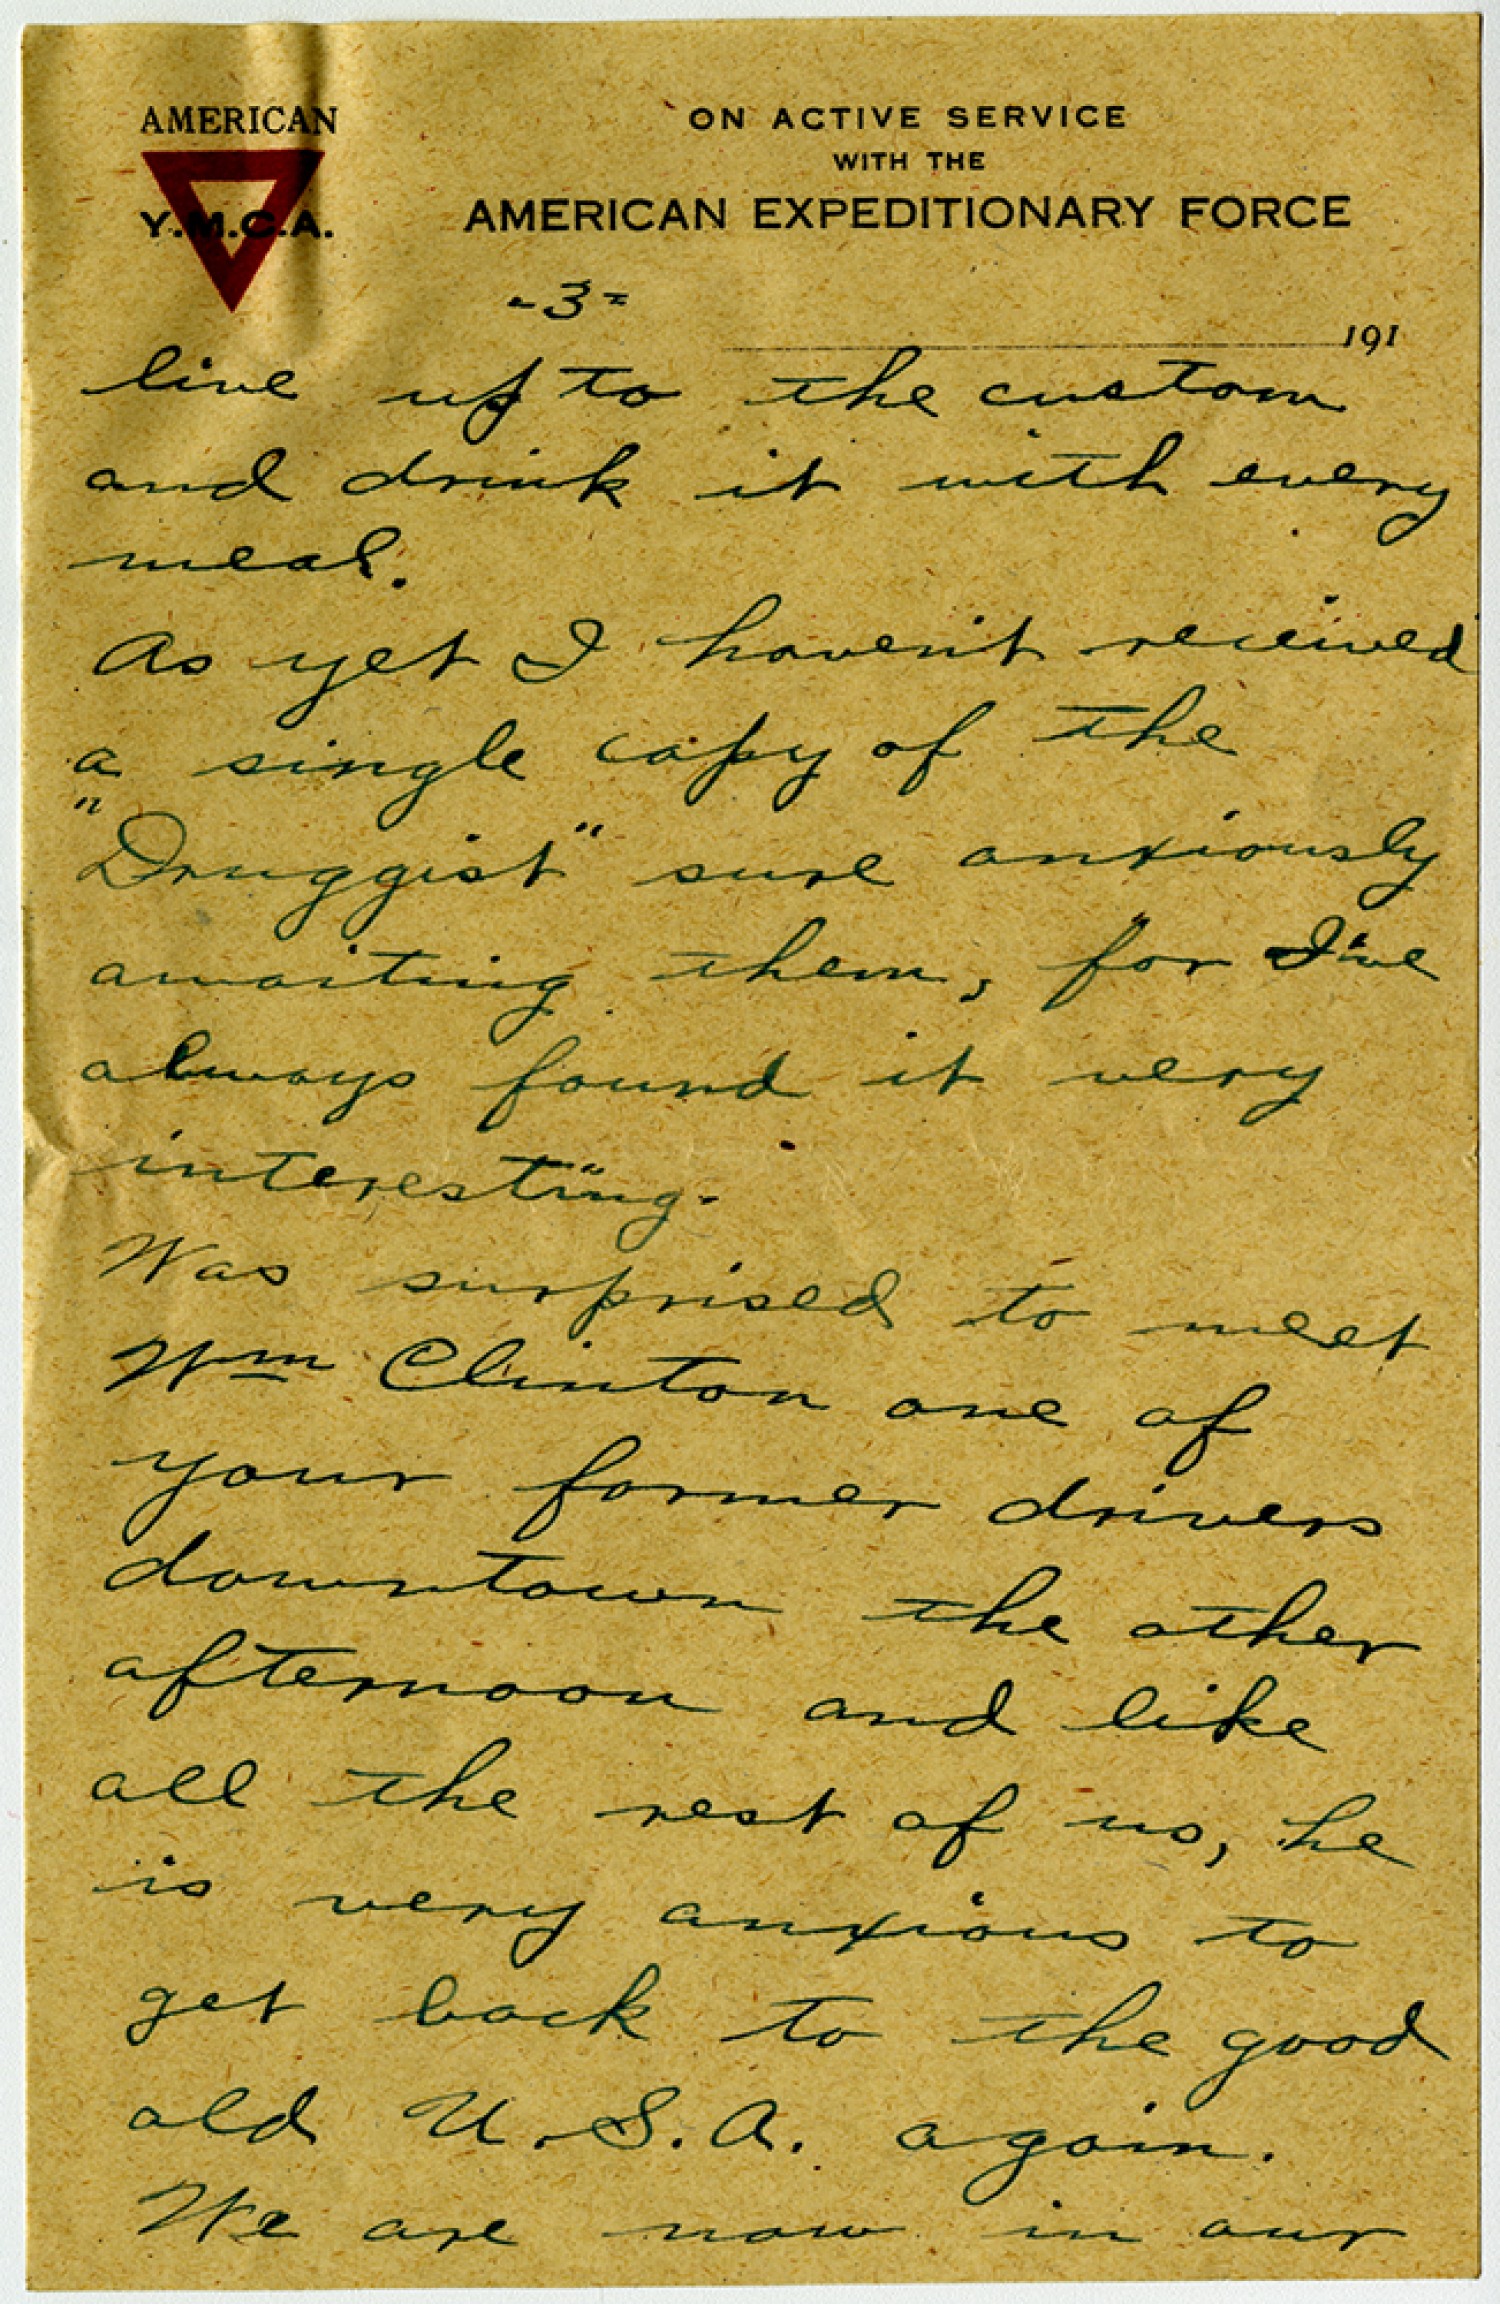 AMERICAN
Y.M.C.A.
ON ACTIVE SERVICE
WITH THE
AMERICAN EXPEDITIONARY FORCE
-3-
191
live up to the custom
and drink it with every
meal.
As yet I haven't received
a single copy of the
"Druggist" sure anxiously
awaiting them, for I've
always found it very
interesting.
Was surprised to meet
Wm Clinton one of
your former drivers
downtown the other
afternoon and like
all the rest of us, he
is very anxious to
get back to the good
old U.S.A. again.
We are now in our